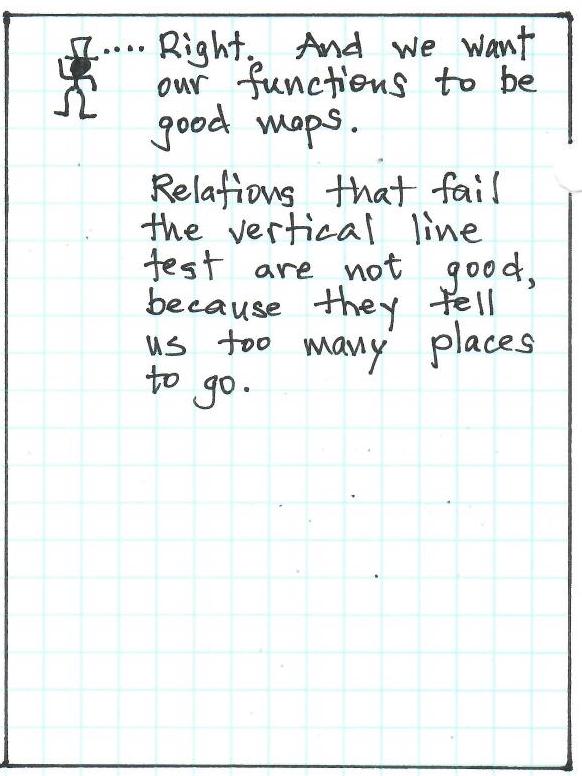 .... Right. And we want
our functions to be
good maps.
Relations that fail
the vertical line
test are not good,
because they tell
us too many places
to go.